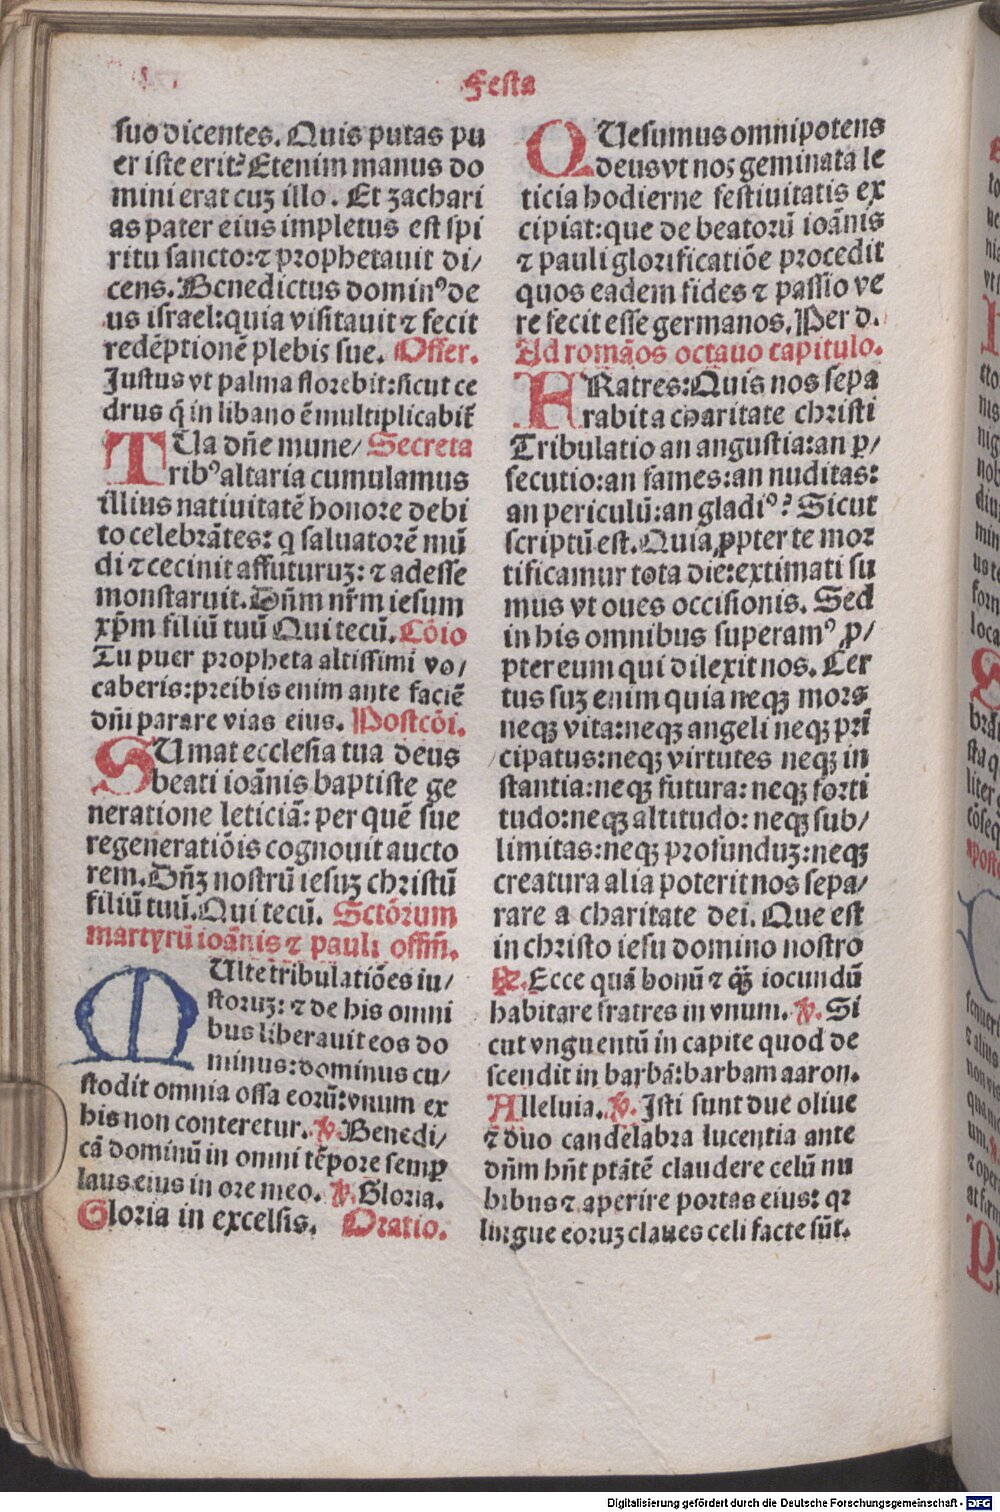 Festa
suo dicentes. Quis putas pu
er iste erit? Etenim manus do
mini erat cuꝫ illo. Et zachari
as pater eius impletus est spi
ritu sancto: ⁊ prophetauit di/
cens. Benedictus dominꝰ de
us israel: quia visitauit ⁊ fecit
redēptionē plebis sue. Offer.
Justus vt palma florebit: sicut ce
drus q̄ in libano ē multiplicabit̄
TUa dn̄e mune/ Secreta
ribꝰ altaria cumulamus
illius natiuitatē honore debi
to celebrātes: q saluatorē mū
di ⁊ cecinit affuturuꝫ: ⁊ adesse
monstrauit. Dn̄m nr̄m iesum
xp̄m filiū tuū Qui tecū. Cōio
Tu puer propheta altissimi vo/
caberis: preibis enim ante faciē
dn̄i parare vias eius. Postcōi.
SUmat ecclesia tua deus
beati ioānis baptiste ge
neratione leticiā: per quē sue
regeneratiōis cognouit aucto
rem. Dn̄ꝫ nostrū iesuꝫ christū
filiū tuū. Qui tecū. Sctōrum
martyrū ioānis ⁊ pauli offm̄.
MUlte tribulatiōes iu/
storuꝫ: ⁊ de his omni
bus liberauit eos do
minus: dominus cu/
stodit omnia ossa eorū: vnum ex
his non conteretur. ℣. Benedi/
cā dominū in omni tēpore semꝑ
laus eius in ore meo. ℣. Gloria.
Gloria in excelsis. Oratio.
QUesumus omnipotens
deus vt nos geminata le
ticia hodierne festiuitatis ex
cipiat: que de beatorū ioānis
⁊ pauli glorificatiōe procedit
quos eadem fides ⁊ passio ve
re fecit esse germanos. Per d.
Ad romāos octauo capitulo.
FRatres: Quis nos sepa
rabit a charitate christi
Tribulatio an angustia: an ꝑ/
secutio: an fames: an nuditas:
an periculū: an gladiꝰ? Sicut
scriptū est. Quia ꝓpter te mor
tificamur tota die: extimati su
mus vt oues occisionis. Sed
in his omnibus superamꝰ ꝓ/
pter eum qui dilexit nos. Cer
tus suꝫ enim quia neqꝫ mors
neqꝫ vita: neqꝫ angeli neqꝫ prī
cipatus: neqꝫ virtutes neqꝫ in
stantia: neqꝫ futura: neqꝫ forti
tudo: neqꝫ altitudo: neqꝫ sub/
limitas: neqꝫ profunduꝫ: neqꝫ
creatura alia poterit nos sepa/
rare a charitate dei. Que est
in christo iesu domino nostro
℟. Ecce quā bonū ⁊ qꝫ̄ iocundū
habitare fratres in vnum. ℣. Si
cut vnguentū in capite quod de
scendit in barbā: barbam aaron.
Alleluia. ℣. Isti sunt due oliue
⁊ duo candelabra lucentia ante
dn̄m hn̄t ptātē claudere celū nu
bibus ⁊ aperire portas eius: qr
lingue eoruꝫ claues celi facte sūt.
Digitalisierung gefördert durch die Deutsche Forschungsgemeinschaft - DFG